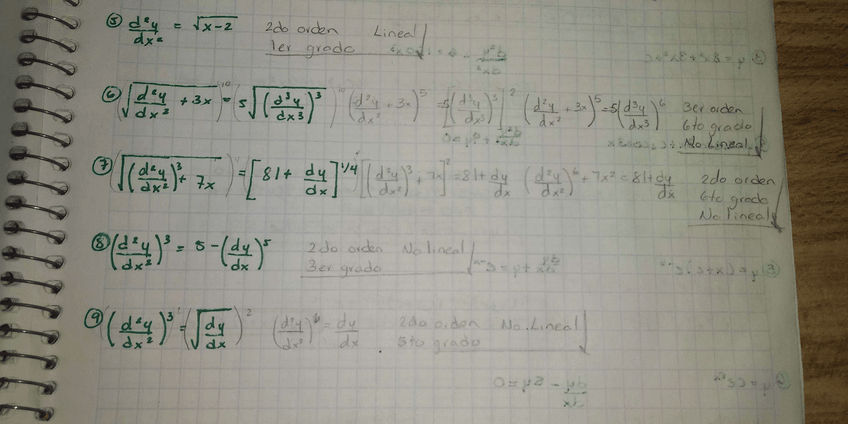 ⑤ d²y/dx² = √(x-2) 2do orden Lineal
1er grado
⑥ (√(d²y/dx² + 3x))¹⁰ = (5√((d³y/dx³)³))¹⁰ (d²y/dx² + 3x)⁵ = 5[(d³y/dx³)³]² (d²y/dx² + 3x)⁵ = 5(d³y/dx³)⁶ 3er orden
6to grado
No Lineal
⑦ (√((d²y/dx²)³ + 7x))⁴ = [81 + dy/dx]^1/4 [(d²y/dx²)³ + 7x]² = 81 + dy/dx (d²y/dx²)⁶ + 7x² = 81 + dy/dx 2do orden
6to grado
No Lineal
⑧ (d²y/dx²)³ = 5 - (dy/dx)⁵ 2do orden No lineal
3er grado
⑨ (d²y/dx²)³ = (√(dy/dx))² (d²y/dx²)⁶ = dy/dx 2do orden No Lineal
5to grado